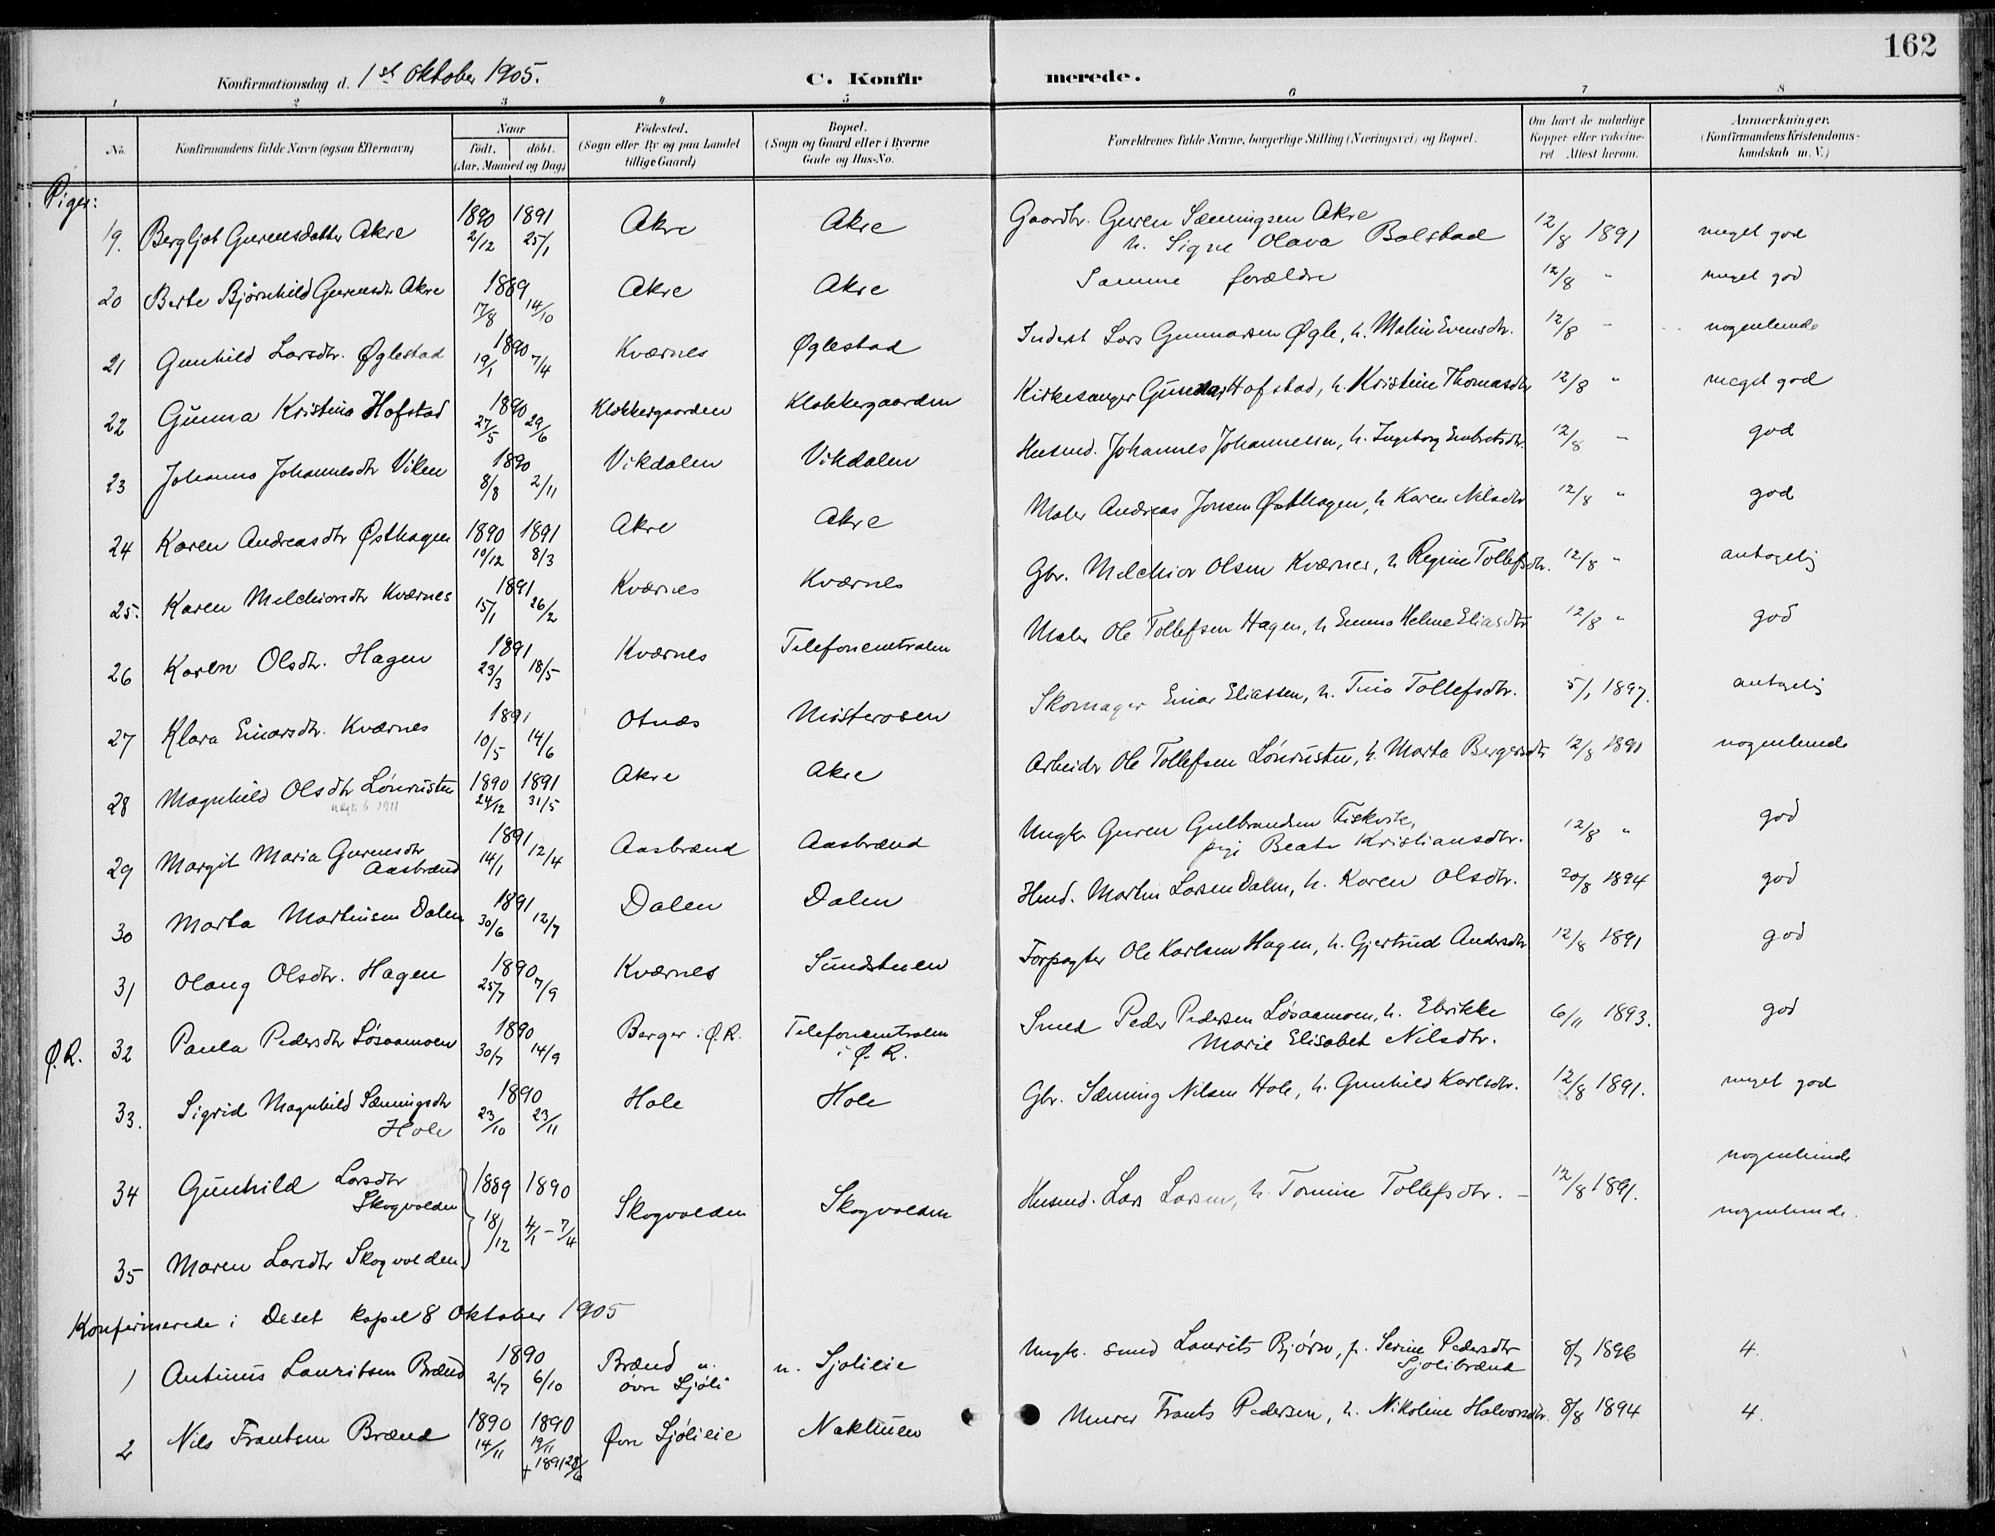 162
Konfirmationsdag d. 1st Oktober 1905. C. Konfir merede.
1 2 3 4 5 6 7 8
No. Konfirmandens fulde Navn (ogsaa Efternavn) Naar født. døbt. (Aar, Maaned og Dag) Fødested. (Sogn eller By og paa Landet tillige Gaard) Bopæl. (Sogn og Gaard eller i Byerne Gade og Hus-No. Forældrenes fulde Navne, borgerlige Stilling (Næringsvei) og Bopæl. Om havt de naturlige Kopper eller vakcineret Attest herom. Anmærkninger. (Konfirmandens Kristendomskundskab m. V.)
Piger:
19. Bergljot Gurensdatter Akre 1890 2/12 1891 25/1 Akre Akre Gaardbr. Guren Sæmingsen Akre
h. Signe Olava Bolstad 12/8 1891 meget god
20 Berte Bjørnhild Gurensdr Akre 1889 17/8 14/10 Akre Akre Samme forældre 12/8 " meget god
21 Gunhild Larsdtr. Øglestad 1890 19/1 7/4 Kværnes Øglestad Inderst Lars Gunnarsen Øgle, h. Malin Evensdtr. 12/8 " nogenlunde
22 Gunna Kristina Hofstad 1890 27/5 29/6 Klokkergaarden Klokkergaarden Kirkesanger Gunnar Hofstad, h. Kristine Thomasdtr 12/8 " meget god
23 Johanna Johannesdtr Viken 1890 8/8 2/11 Vikdalen Vikdalen Husmd. Johannes Johannesen, h. Ingeborg Embretsdtr. 12/8 " god
24 Karen Andreasdtr Østhagen 1890 10/12 1891 8/3 Akre Akre Maler Andreas Jonsen Østhagen, h Karen Nilsdtr 12/8 " god
25. Karen Melchiorsdtr Kværnes 1891 15/1 26/2 Kværnes Kværnes Gbr. Melchior Olsen Kværnes, h Regine Tollefsdtr. 12/8 " antagelig
26 Karen Olsdtr. Hagen 1891 23/3 18/5 Kværnes Telefoncentralen Maler Ole Tollefsen Hagen, h Emma Helene Eliasdtr 12/8 " god
27 Klara Einarsdtr. Kværnes 1891 10/5 14/6 Otnæs Misterosen Skomager Einar Eliassen, h. Tina Tollefsdtr. 5/1 1897. antagelig
28 Magnhild Olsdtr Lønrusten 1890 24/12 1891 31/5 Akre Akre Arbeider Ole Tollefsen Lønrusten, h. Marta Bergersdtr 12/8 1891 nogenlunde
29 Margit Maria Gurensdtr
Aasbrænd 1891 14/1 12/4 Aasbrænd Aasbrænd Ungkr. Guren Gulbrandsen Fiskvik,
pige Beate Kristiansdtr. 12/8 " god
30 Marta Martinsen Dalen 1891 30/6 12/7 Dalen Dalen Husmd. Martin Larsen Dalen, h. Karen Olsdtr. 20/8 1894 god
31 Olaug Olsdtr. Hagen 1890 25/7 7/9 Kværnes Sundstuen Forpagter Ole Karlsen Hagen, h. Gjertrud Andersdtr 12/8 1891 god
Ø.R. 32 Paula Pedersdtr Løsaamoen 1890 30/7 14/9 Berger i Ø.R. Telefoncentralen
i Ø.R. Smed Peder Pedersen Løsaamoen, h. Elrikke
Marie Elisabet Nilsdtr. 6/11 1893. god
33. Sigrid Magnhild Sæmingsdtr
Hole 1890 23/10 23/11 Hole Hole Gbr. Sæming Nilsen Hole, h. Gunhild Karlsdtr. 12/8 1891. meget god
34 Gunhild Larsdtr
Skogvolden 1889 18/12 1890 4/1 - 7/4 Skogvolden Skogvolden Husmd. Lars Larsen, h. Tomine Tollefsdtr. - 12/8 1891. nogenlunde
35 Maren Larsdtr Skogvolden nogenlunde.
Konfirmerede i Deset kapel 8 Oktober 1905
1 Antinus Lauritsen Brænd 1890 2/7 6/10 Brænd u.
øvre Sjøli n. Sjøliie Ungk. smed Laurits Bjørn, p. Serine Pedersdtr
Sjølibrænd 8/7 1896 4.
2 Nils Frantsen Brænd 1890 14/11 1890 19/11
+ 1891 28/6 Øvre Sjøliie Naktuen Murer Frants Pedersen, h. Nikoline Halvorsdtr. 8/8 1894 4.